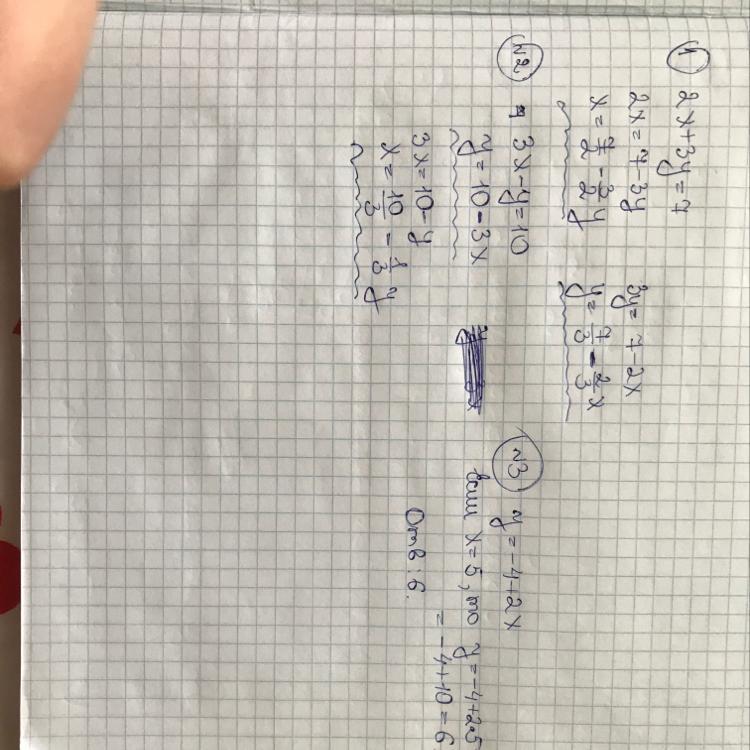 1
2x+3y=7
2x=7-3y
x=7/2-3/2y
3y=7-2x
y=7/3-2/3x
N2
3x-y=10
y=10-3x
3x=10-y
x=10/3-1/3y
N3
y=-4+2x
если x=5, то y=-4+2·5
=-4+10=6
Отв: 6.